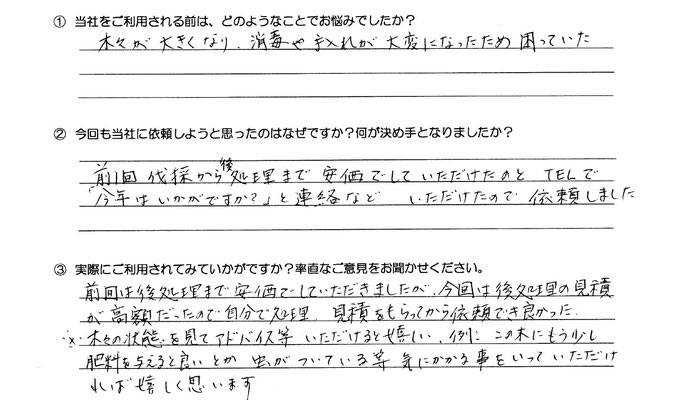 ① 当社をご利用される前は、どのようなことでお悩みでしたか?
木々が大きくなり、消毒や手入れが大変になったため困っていた
② 今回も当社に依頼しようと思ったのはなぜですか?何が決め手となりましたか?
前回伐採から後処理まで安価でしていただけたのと TELで
「今年はいかがですか?」と連絡など いただけたので依頼しました
③ 実際にご利用されてみていかがですか?率直なご意見をお聞かせください。
前回は後処理まで安価でしていただきましたが、今回は後処理の見積
が高額だったので自分で処理、見積をもらってから依頼でき良かった。
※木々の状態を見てアドバイス等 いただけると嬉しい、例に この木にもう少し
肥料を与えると良いとか 虫がついている等 気にかかる事をいっていただけ
れば嬉しく思います